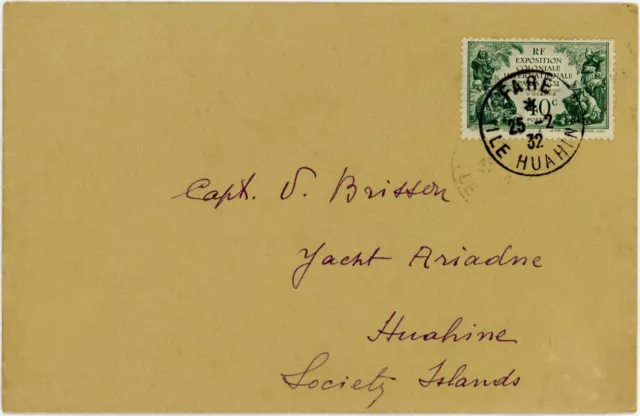 RF
EXPOSITION
COLONIALE
INTERNATIONALE
40 c
FARE
*
25 -2
32
ILE HUAHIN
ILE
Capt. V. Brisson
Yacht Ariadne
Huahine
Society Islands